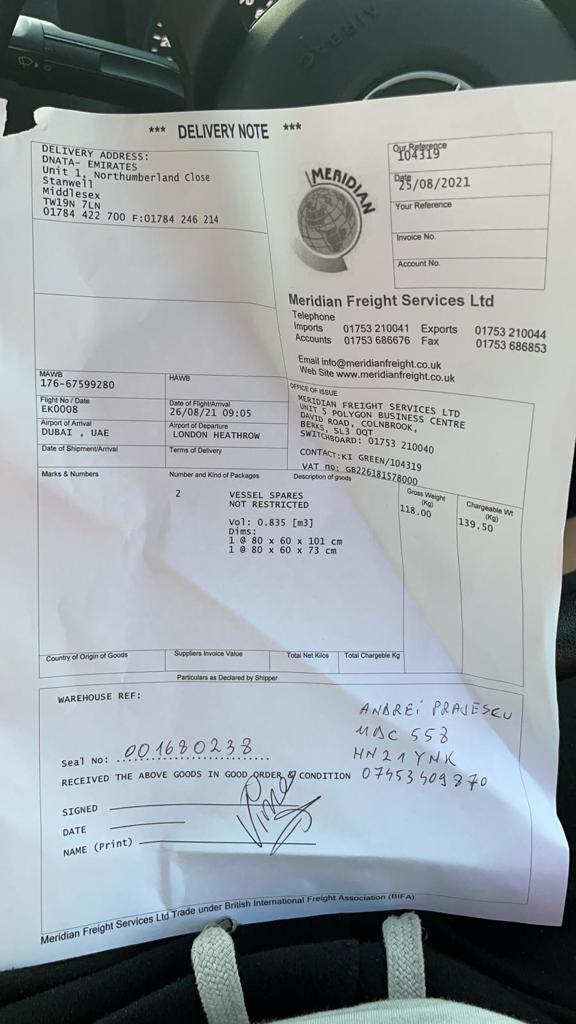 AIRBAG
*** DELIVERY NOTE ***
DELIVERY ADDRESS:
DNATA- EMIRATES
Unit 1, Northumberland Close
Stanwell
Middlesex
TW19N 7LN
01784 422 700 F:01784 246 214
Our Reference
104319
Date
25/08/2021
Your Reference
Invoice No.
Account No.
MERIDIAN
Meridian Freight Services Ltd
Telephone
Imports 01753 210041 Exports 01753 210044
Accounts 01753 686676 Fax 01753 686853
Email info@meridianfreight.co.uk
Web Site www.meridianfreight.co.uk
MAWB
176-67599280
HAWB
Flight No / Date
EK0008
Date of Flight/Arrival
26/08/21 09:05
Airport of Arrival
DUBAI , UAE
Airport of Departure
LONDON HEATHROW
Date of Shipment/Arrival
Terms of Delivery
OFFICE OF ISSUE
MERIDIAN FREIGHT SERVICES LTD
UNIT 5 POLYGON BUSINESS CENTRE
DAVID ROAD, COLNBROOK,
BERKS, SL3 0QT
SWITCHBOARD: 01753 210040
CONTACT:KI GREEN/104319
VAT no: GB226181578000
Marks & Numbers
Number and Kind of Packages
Description of goods
Gross Weight
(Kg)
Chargeable Wt
(Kg)
2
VESSEL SPARES
NOT RESTRICTED
118.00
139.50
Vol: 0.835 [m3]
Dims:
1 @ 80 x 60 x 101 cm
1 @ 80 x 60 x 73 cm
Country of Origin of Goods
Suppliers Invoice Value
Total Net Kilos
Total Chargeable Kg
Particulars as Declared by Shipper
WAREHOUSE REF:
ANDREI PRAJESCU
MDC 558
HN21YNK
07453409870
Seal No: 001680238
RECEIVED THE ABOVE GOODS IN GOOD ORDER & CONDITION
SIGNED
DATE
NAME (Print)
Meridian Freight Services Ltd Trade under British International Freight Association (BIFA)